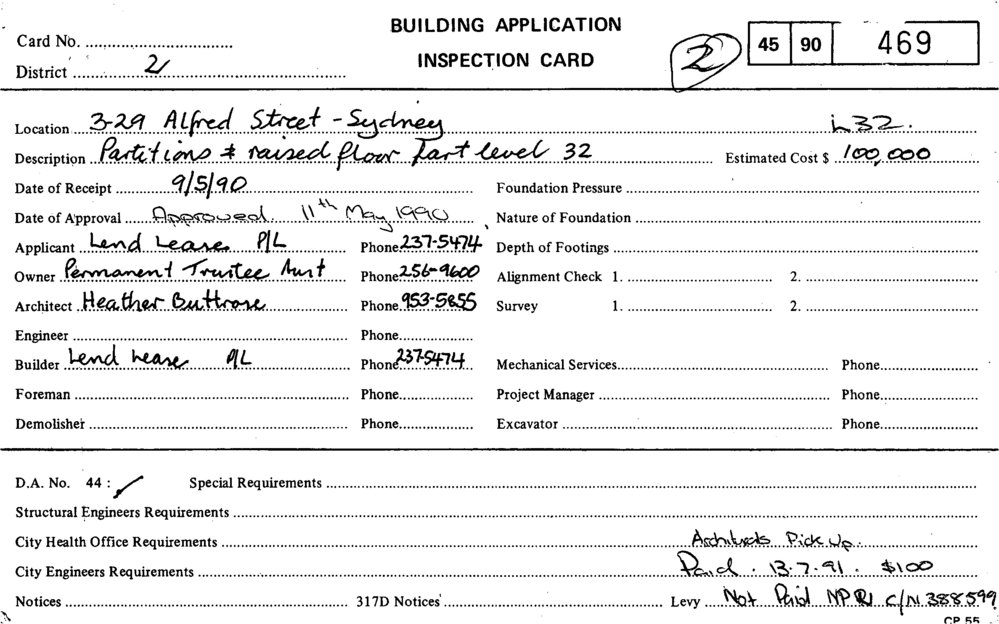 BUILDING APPLICATION
INSPECTION CARD
Card No. ..............................
District ........2........
2
45 90 469
Location 3-29 Alfred Street - Sydney L32.
Description Partitions & raised floor Part level 32 Estimated Cost $ 100,000
Date of Receipt 9/5/90 Foundation Pressure
Date of Approval Approved. 11th May 1990 Nature of Foundation
Applicant Lend Lease P/L Phone 237-5474 Depth of Footings
Owner Permanent Trustee Aust Phone 256-9600 Alignment Check 1. 2.
Architect Heather Buttrose Phone 953-5855 Survey 1. 2.
Engineer Phone
Builder Lend Lease P/L Phone 237-5474 Mechanical Services Phone
Foreman Phone Project Manager Phone
Demolisher Phone Excavator Phone
D.A. No. 44 : ✓ Special Requirements
Structural Engineers Requirements
City Health Office Requirements Architects Pick Up.
City Engineers Requirements Paid . 13.7.91 . $100
Notices 317D Notices Levy Not Paid NP c/N 388599
CP 55